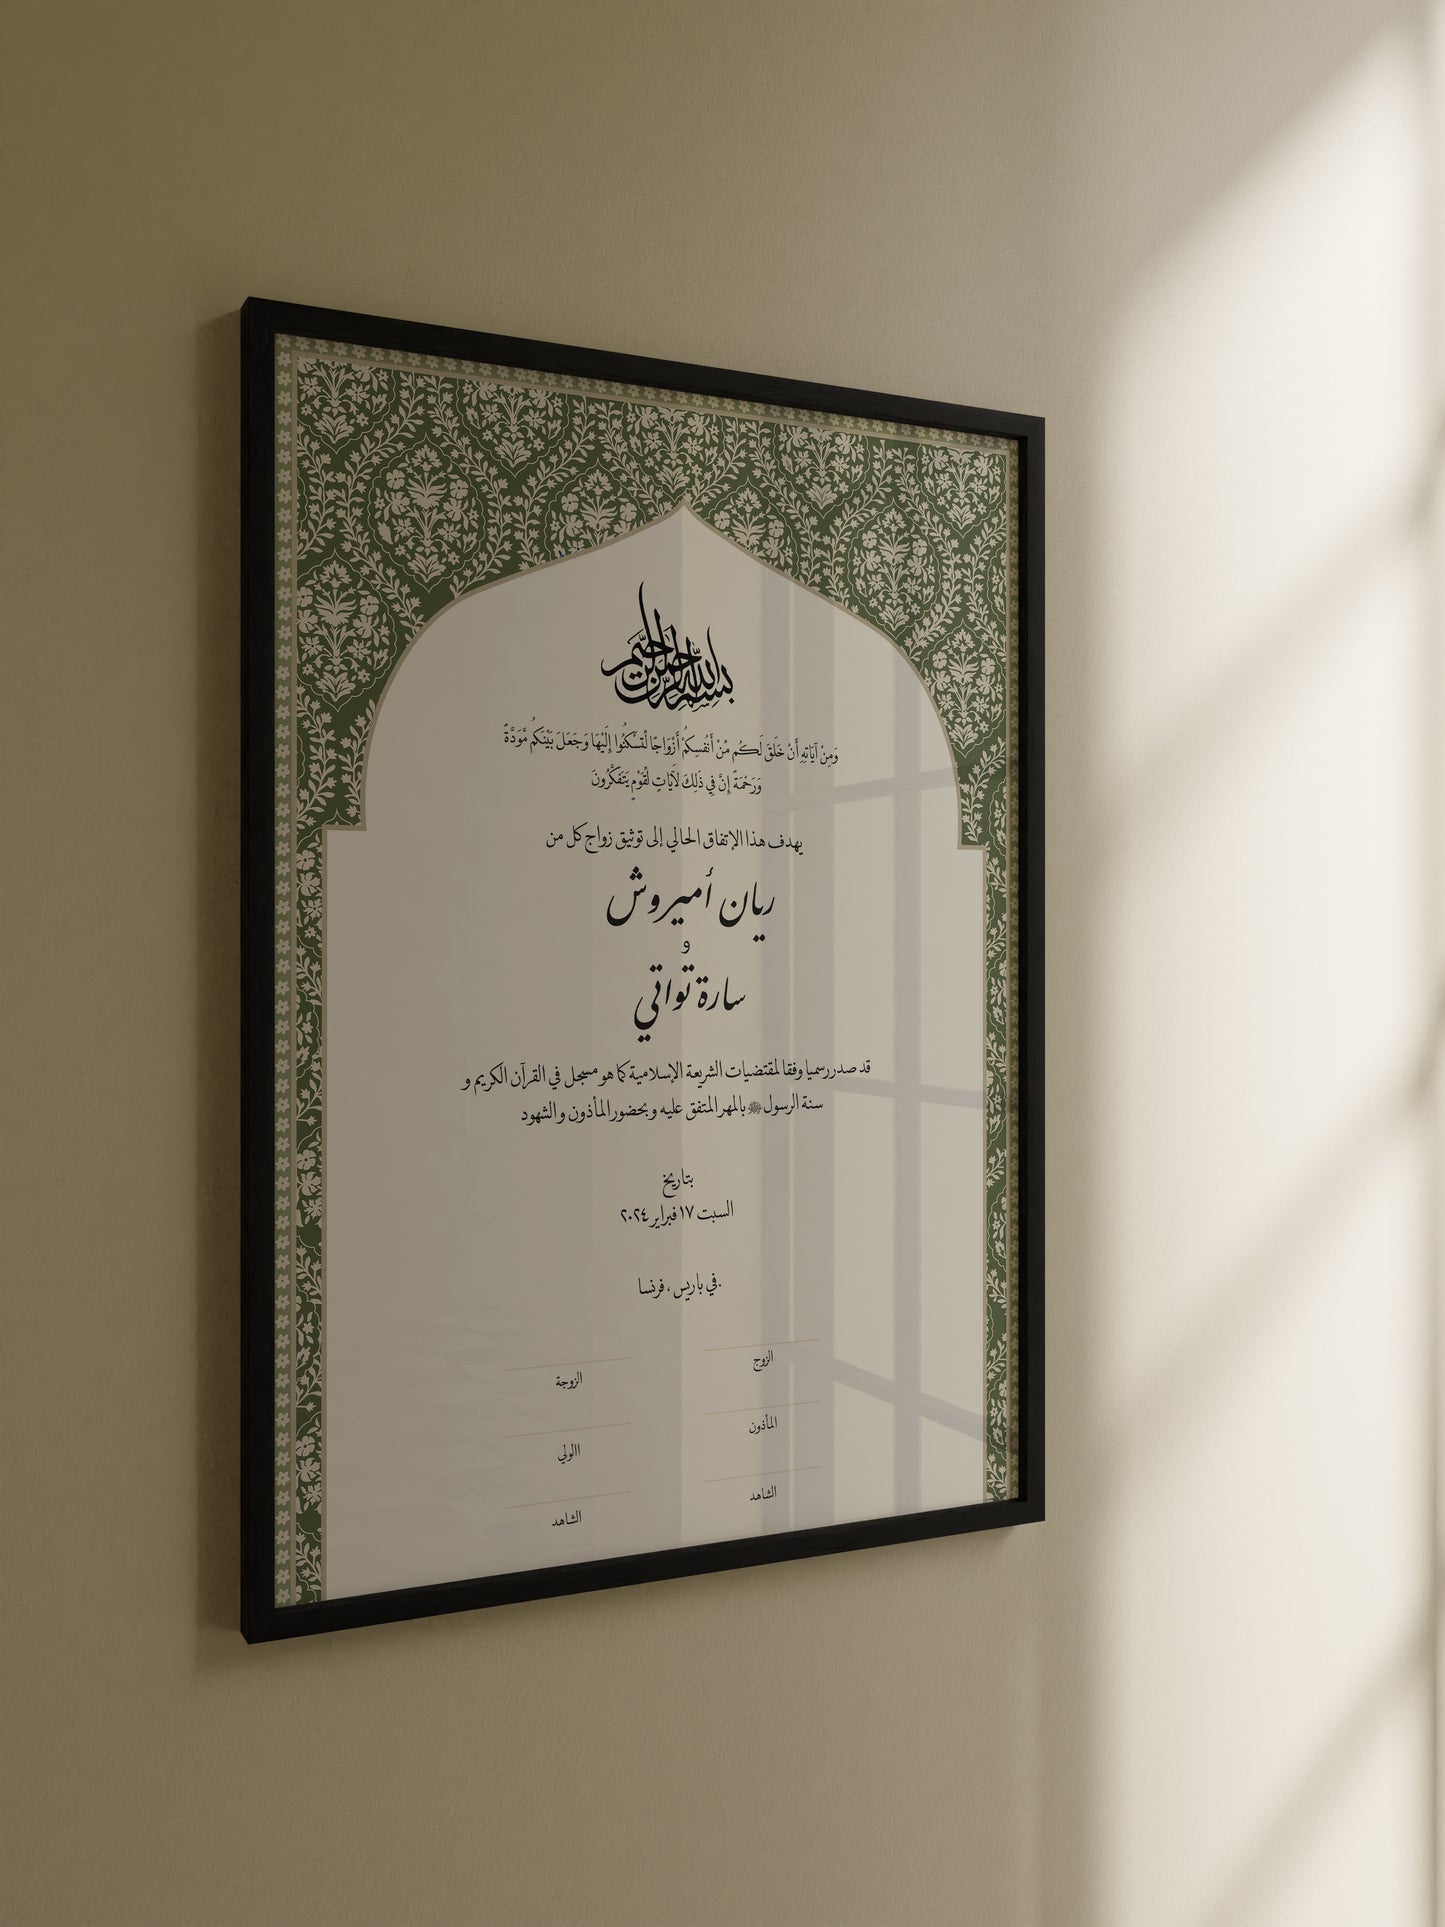 بسم الله الرحمن الرحيم
وَمِنْ آيَاتِهِ أَنْ خَلَقَ لَكُم مِّنْ أَنفُسِكُمْ أَزْوَاجًا لِّتَسْكُنُوا إِلَيْهَا وَجَعَلَ بَيْنَكُم مَّوَدَّةً
وَرَحْمَةً إِنَّ فِي ذَلِكَ لَآيَاتٍ لِّقَوْمٍ يَتَفَكَّرُونَ
يهدف هذا الإتفاق الحالي إلى توثيق زواج كل من
ريان أميروش
و
سارة تواتي
قد صدر رسميا وفقا لمقتضيات الشريعة الإسلامية كما هو مسجل في القرآن الكريم و
سنة الرسول ﷺ بالمهر المتفق عليه و بحضور المأذون و الشهود
بتاريخ
السبت ١٧ فبراير ٢٠٢٤
.في باريس ، فرنسا
الزوج
الزوجة
المأذون
االولي
الشاهد
الشاهد